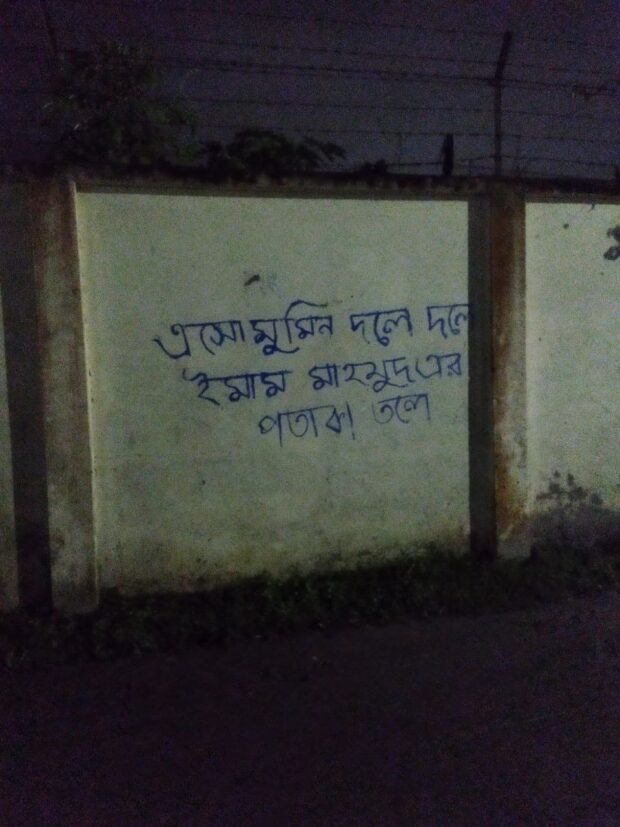 এসো মুমিন দলে দলে
ইমাম মাহমুদ এর
পতাকা তলে